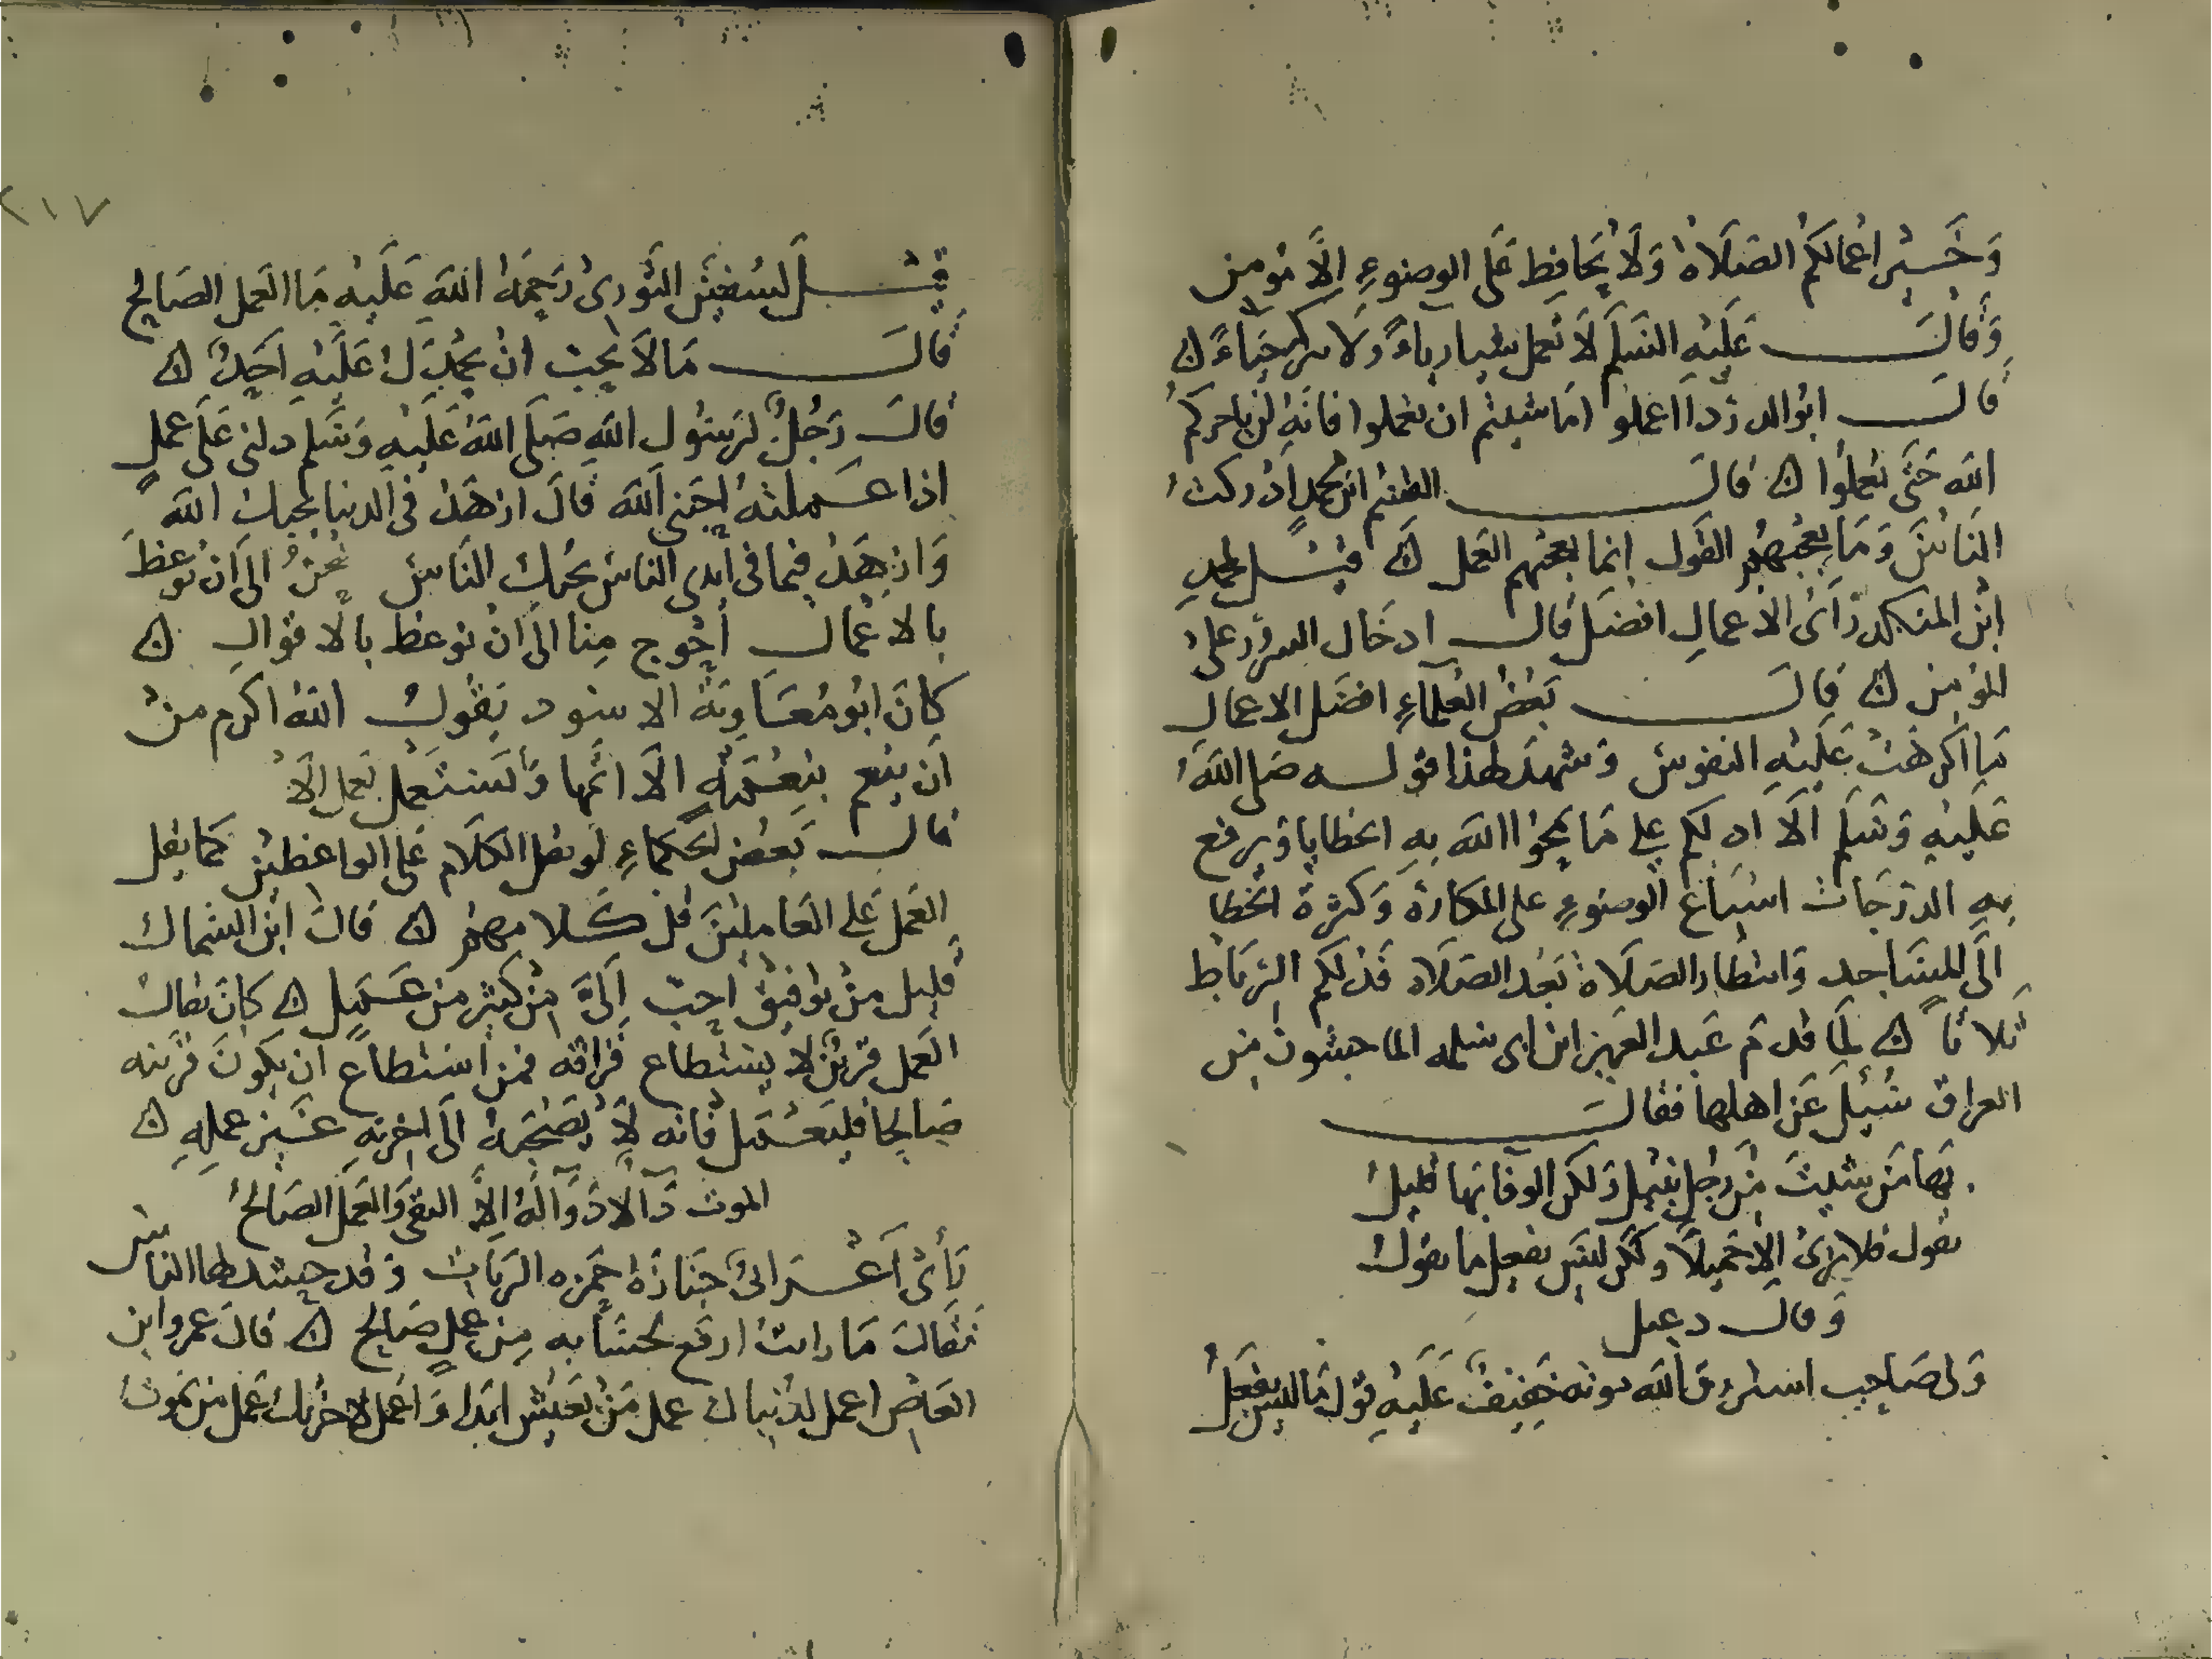 وَخَيْر اعْمالكُم الصَلَاةُ وَلَا يُحَافِظ عَلَى الوضوءِ اِلَّا مُومن
وَقَالَ عَلَيْهِ السَّلم لَا تعمل شيا رياءً ولا تتركه حَيَاءً ۞
قَالَ ابُو الدردَا اعملوا مَا شيتم ان تعملوا فانهِ لن ياجركم
الله حَتَّى تعملُوا ۞ قالَ القسم ابن محمدٍ ادْركتُ
النَاسَ وَمَا يعْجبهُم القَول اِنما يعجبهم العَمل ۞ قيْل لمحمدِ
ابْن المنكدر اَىُّ الاعمالِ افضَل قَال ادخَال السرُور على
المؤمن ۞ قالَ بَعْضُ العُلمآءِ افضَل الاعمالِ
مَا اكْرهتْ عَلَيْهِ النفوسَ وَشهد لهذا قوله صَلى اللهُ
عَلَيْهِ وَسَلَم اَلَا ادلكم على مَا يمحُوا اللهَ بهِ الخطايا وَيرفع
بهِ الدرَجَات اسْبَاغ الوضوءِ على المكارة وَكثرة الخُطا
الَى المسَاجد وَانتظار الصَلَاةُ بَعْد الصَلَاه فَذلكم الرِّبَاط
ثَلاثاً ۞ لَمَا قدم عَبد العَزيز ابْن ابى سَلمه الماجشُون مِن
العراق سُيِلَ عَن اهلها فقالَ
بهَا مَن شيتَ مِن رجل نبيل وَلكن الوفا بها قليلُ
يقول فلا ترىُ اِلا جَميلًا وَلكن ليسَ يفعل ما يقولُ
وَقالَ دعبل
وَلى صَاحِب خَفيفٌ عَلَيهِ قول مَا ليسَ يفعَلُ
٢١٧
قيْل لسُفيَن الثَّورىُ رَحِمَهُ الله عَلَيهِ مَا العَمل الصَالحُ
قَالَ مَا لَا يُحِبّ انْ يَحْمدَكْ عَلَيْهِ اَحَدٌ ۞
قَالَ رَجُلٌ لرَسُول اللهِ صَلَى اللهُ عَلَيهِ وَسَلم دلنى عَلَى عَملٍ
اذا عَملتهُ احَبَني اللهَ قالَ ازهَدْ فى الدنيا يُحبك اللهَ
وَازهَدْ فيما فى ايدى الناس يُحبك النَاسَ نحْنُ الَى اَنْ نُوعظَ
بالاعْمال اَحْوج مِنا الَى انْ نوعظ بالاقوالِ ۞
كانَ ابُو مُعَاوِيَة الاسْود يَقولُ اللهُ اكرم منْ
اَن ينعم بنِعْمَهٍ الَا اتمها وَيسْتعْمل بعَمل الَا
قالَ بَعْض الحكماءِ لو يثقل الكلَام عَلى الواعظين كَما يثقل
العَمل عَلى العَاملينَ قل كَلامهُم ۞ قالَ ابْن السَّماك
قليل منْ تَوفيق احَبّ اِلَىَّ مِن كثير من عَمَلٍ ۞ كانَ يقالْ
العَمل قَرين لَا يسْتطَاع فَراقه فمن استطاع ان يكونَ قرينه
صَالِحًا فليَعْمَل فانه لَا يَصْحَبهُ الَى اخرتهِ غَيْر عملهِ ۞
الموت دَآ لا دَوَآلهُ اِلَّا التقَى وَالعَمَل الصَالحُ
رَأَى اَعْرَابىُّ جَنَازَهُ حَمزه الزيات وَقد حشد لها الناسُ
فَقالَ مَا رايت ارفع لحسَبًا بهِ مِن عَملٍ صَالحٍ ۞ قالَ عمرو ابن
العَاص اعمل لدنياك عمل مَنْ يَعيش ابَدا وَاعمل لاخرتك عَمل مَن يَموت